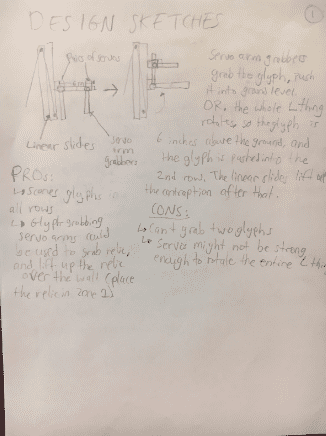 DESIGN SKETCHES
1
Pairs of servos
Linear slides
servo
arm
grabbers
Servo arm grabbers
grab the glyph, push
it into ground level.
OR, the whole L thing
rotates so the glyph is
6 inches above the ground, and
the glyph is pushed into the
2nd row. The linear slides lift up
the contraption after that.
PROs:
↳ Scores glyphs in
all rows
↳ Glyph grabbing
servo arms could
be used to grab relic,
and lift up the relic
over the wall (place
the relic in zone 1)
CONS:
↳ Can't grab two glyphs
↳ Servos might not be strong
enough to rotate the entire L thing